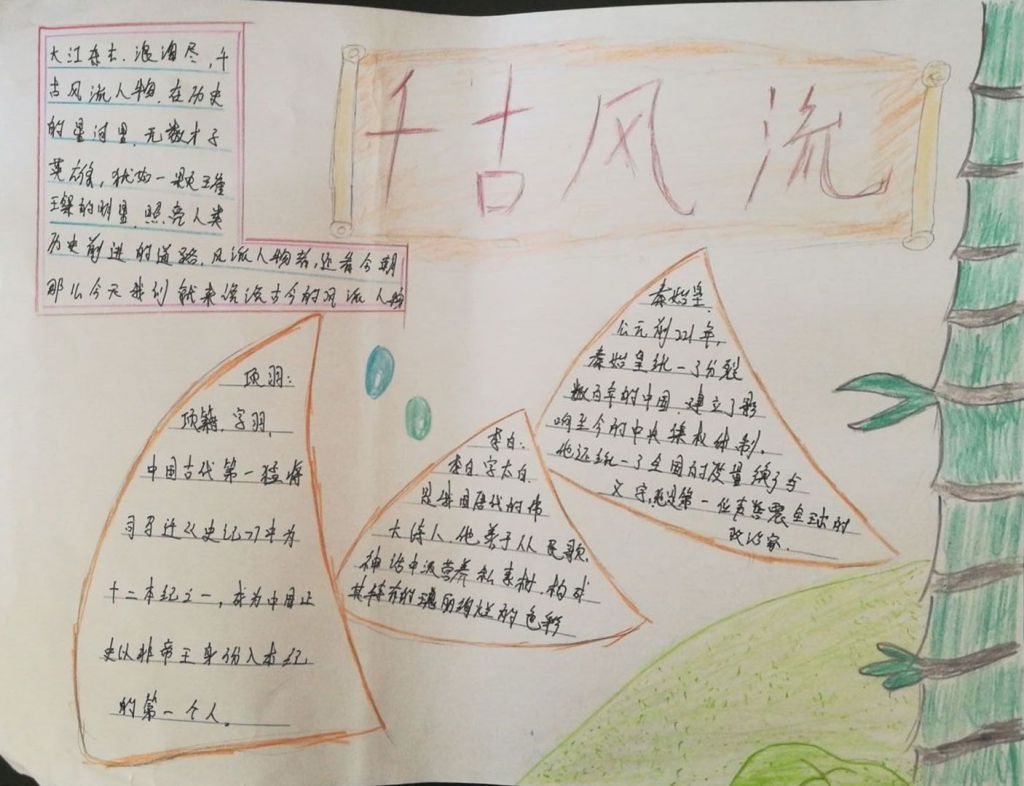 千古风流
大江东去,浪淘尽,千
古风流人物,在历史
的星河里,无数才子
英雄,犹如一颗颗璀
璨的明星,照亮人类
历史前进的道路,风流人物者,还看今朝
那么今天我们就来谈谈古今的风流人物
项羽:
项籍,字羽,
中国古代第一猛将
司马迁《史记》中为
十二本纪之一,成为中国正
史以非帝王身份入本纪
的第一个人。
李白:
李白,字太白,
是我国唐代的伟
大诗人,他善于从民歌,
神话中汲营养和素材,构成
其特有的瑰丽绚烂的色彩
秦始皇
公元前221年,
秦始皇统一了分裂
数百年的中国,建立了影
响至今的中央集权体制。
他还统一了全国的度量衡与
文字,他是第一位声誉震全球的
政治家.